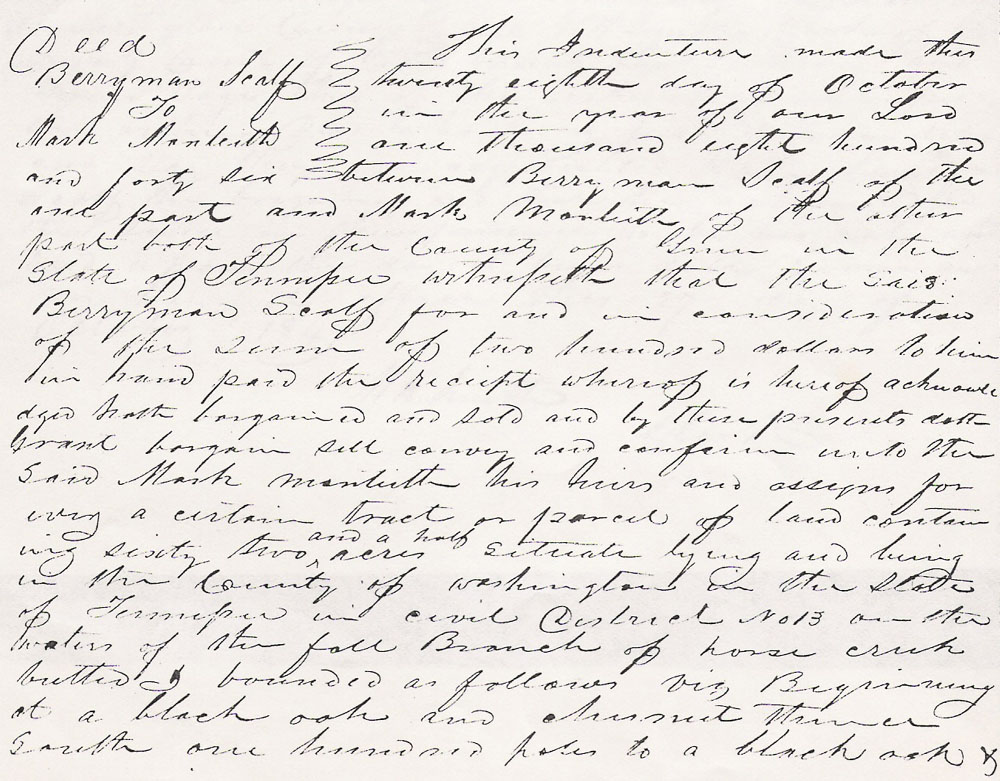 Deed
Berryman Scalf
To
Mark Monteith
This Indenture made this
twenty eighth day of October
in the year of our Lord
one thousand eight hundred
and forty six between Berryman Scalf of the
one part and Mark Monteith of the other
part both of the County of Green in the
State of Tennessee witnesseth that the said
Berryman Scalf for and in consideration
of the sum of two hundred dollars to him
in hand paid the receipt whereof is hereof acknowle
dged hath bargained and sold and by these presents doth
Grant bargain sell convey and confirm unto the
said Mark Monteith his heirs and assigns for
ever a certain tract or parcel of land contain
ing sixty two and a half acres situate lying and being
in the County of Washington in the State
of Tennessee in civil District No 13 on the
waters of the fall Branch of horse creek
butted & bounded as follows viz Beginning
at a black oak and chesnut thence
South one hundred poles to a black oak &